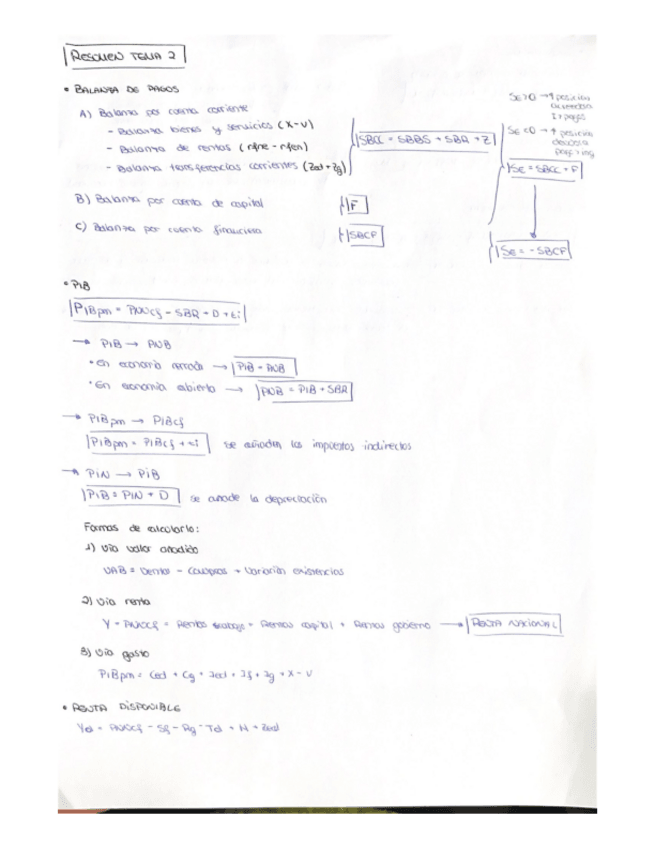 RESUMEN TEMA 2
• BALANZA DE PAGOS
A) Balanza por cuenta corriente
- Balanza bienes y servicios (X-V)
- Balanza de rentas (rfne - rfen)
- Balanza transferencias corrientes (Zed + Zg)
SBCC = SBBS + SBR + Z
SE>0 → ↑ posición
acreedora
SE<0 → ↑ posición
deudora
SE = SBCC + F
B) Balanza por cuenta de capital
F
C) Balanza por cuenta financiera
SBCF
SE = - SBCF
• PIB
PIBpm = PNNcf - SBR + D + ti
→ PIB → PNB
• En economía cerrada → PIB = PNB
• En economía abierta → PNB = PIB + SBR
→ PIBpm → PIBcf
PIBpm = PIBcf + ti se añaden los impuestos indirectos
→ PIN → PIB
PIB = PIN + D se añade la depreciación
Formas de calcularlo:
1) Vía valor añadido
VAB = Ventas - Compras + Variación existencias
2) Vía renta
Y = PNNcf = Rentas trabajo + Rentas capital + Rentas gobierno → RENTA NACIONAL
3) Vía gasto
PIBpm = Ced + Cg + Ied + If + Ig + X - V
• RENTA DISPONIBLE
Yed = PNNcf - Sf - Rg - Td + N + Zed